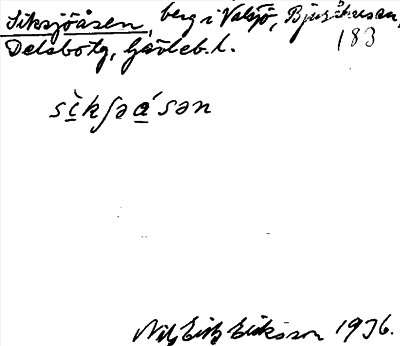 Siksjöåsen, berg i Valsjö, Bjuråkersn,
183
Delsbotg, Gävleb. l.
sìkʃəása̱n
Nils Eric Eriksson 1936.